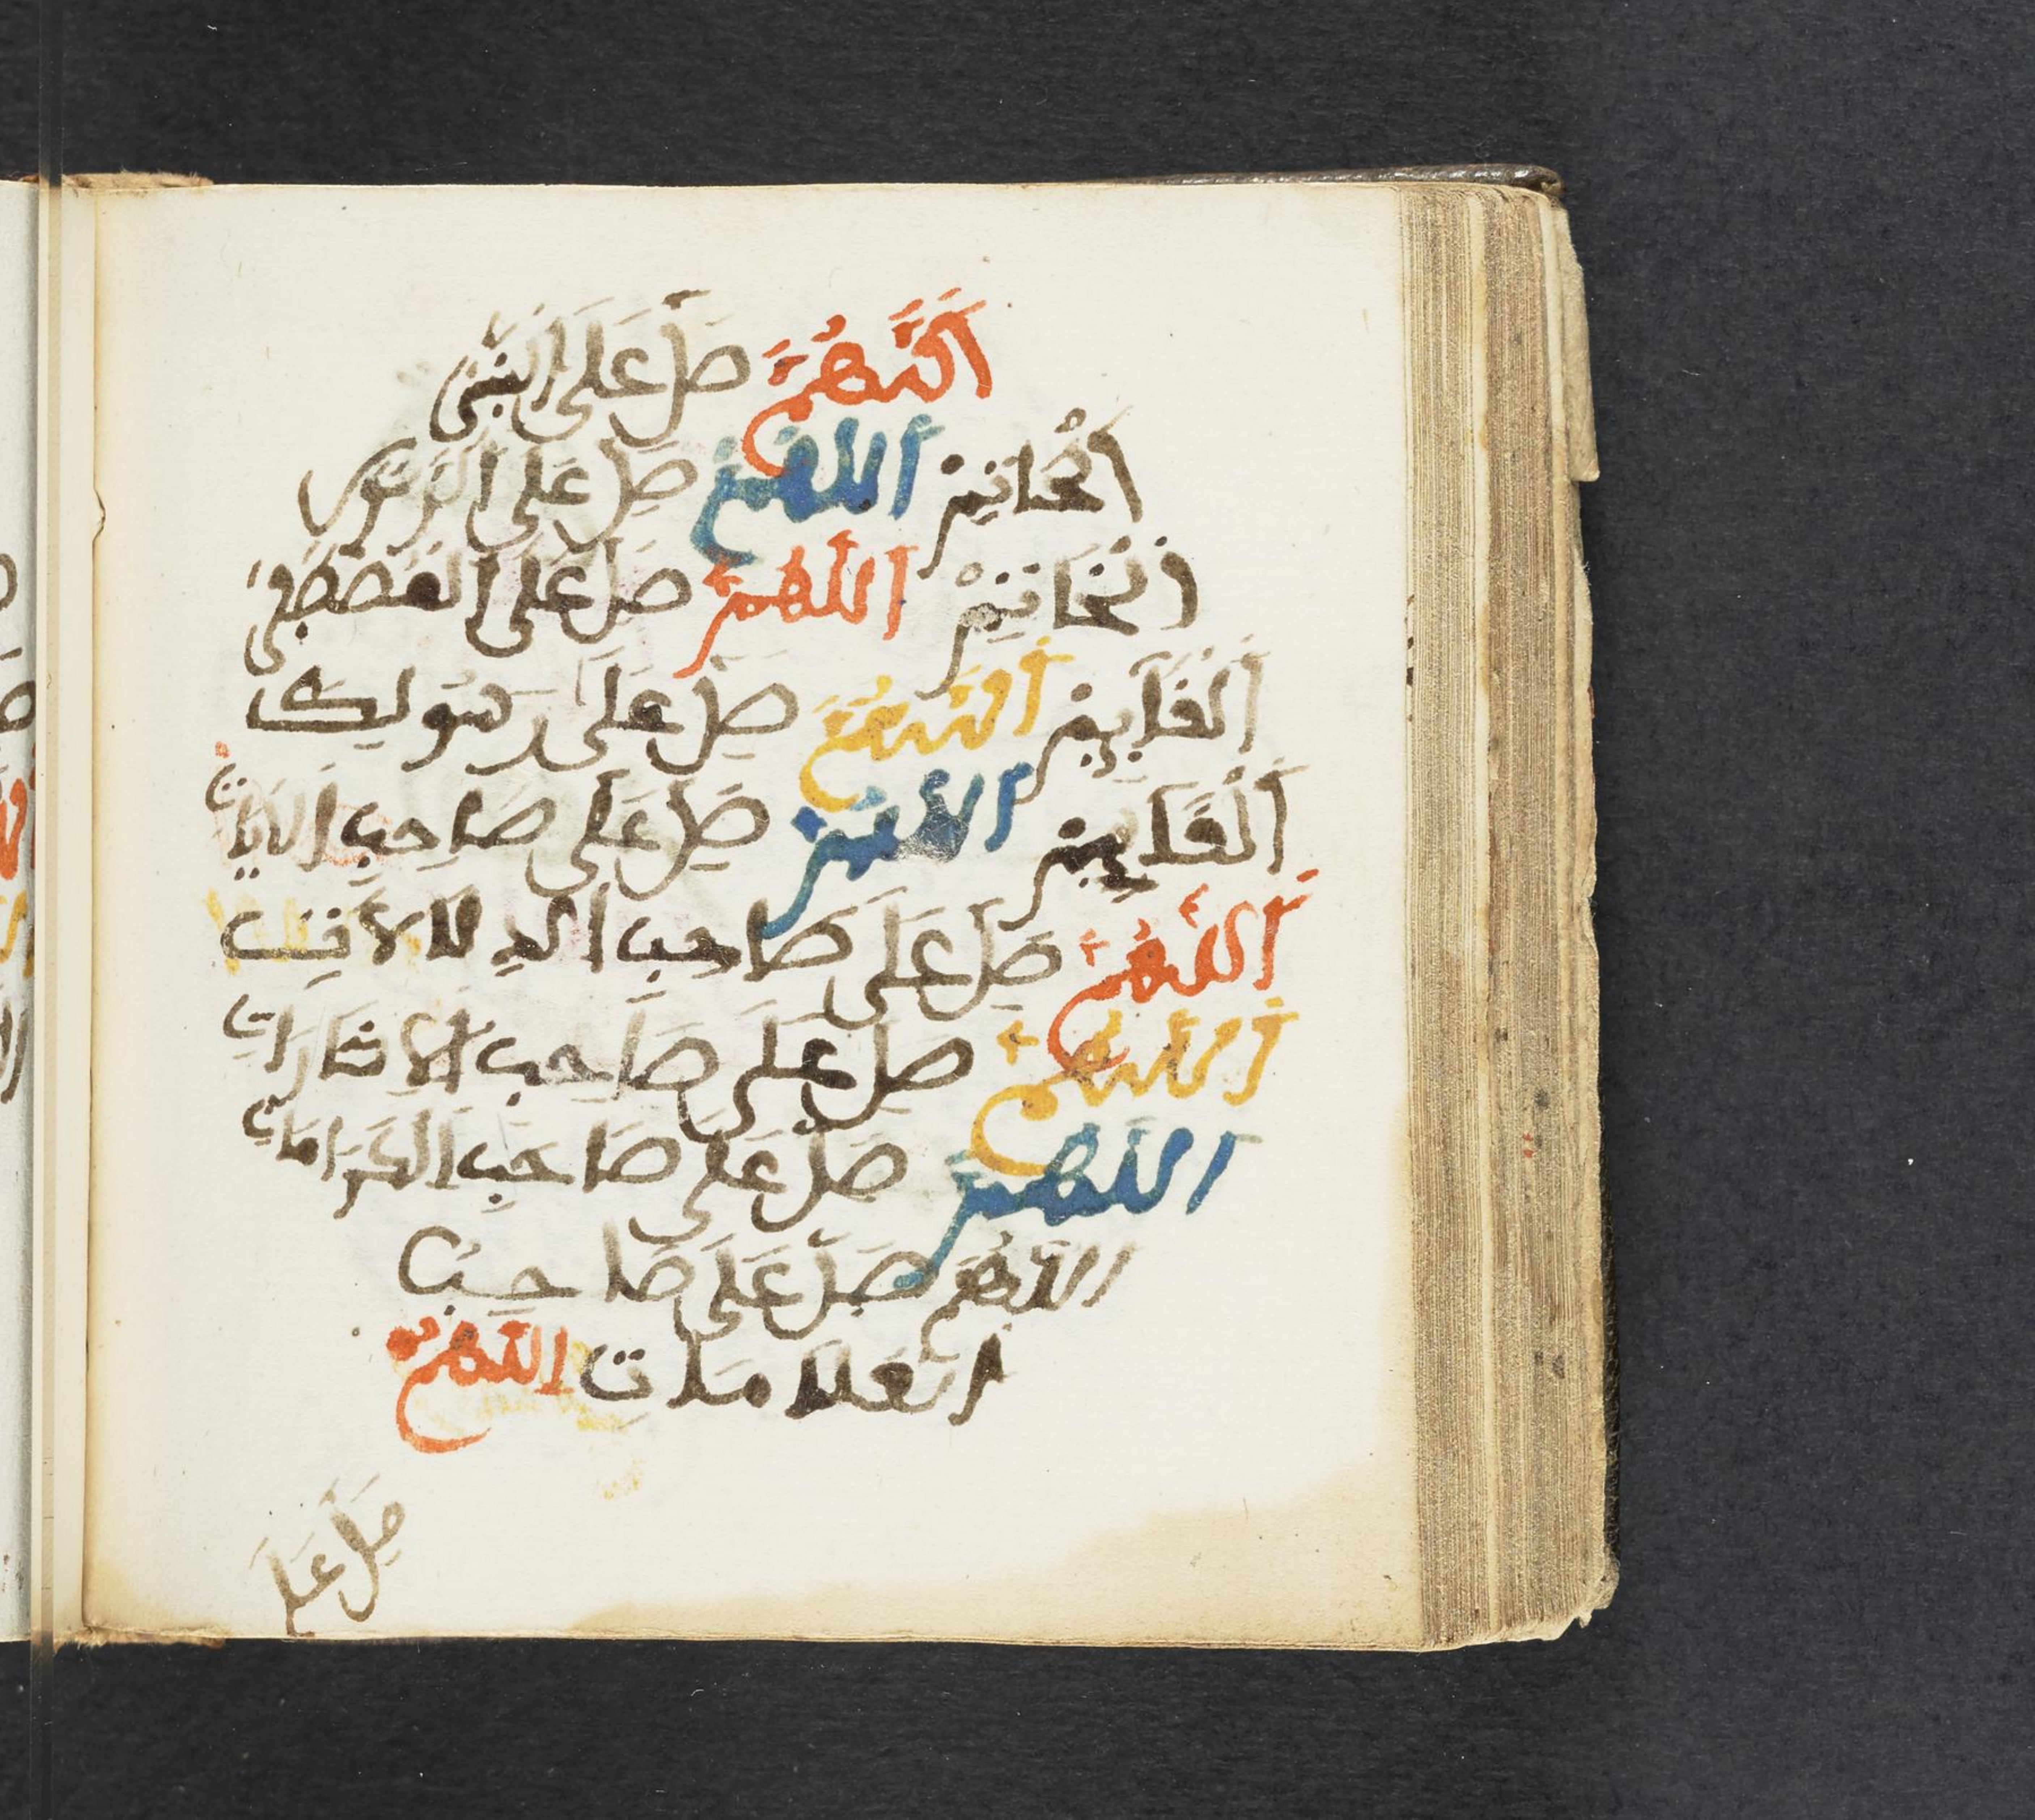 اللهم صل على النبي
الخاتم اللهم صل على الرسول
الخاتم اللهم صل على المصطفى
القايم اللهم صل على رسولك
القايم اللهم صل على صاحب الايات
اللهم صل على صاحب الدلالات
اللهم صل على صاحب الاشارات
اللهم صل على صاحب الكرامات
اللهم صل على صاحب
العلامات اللهم
صل على